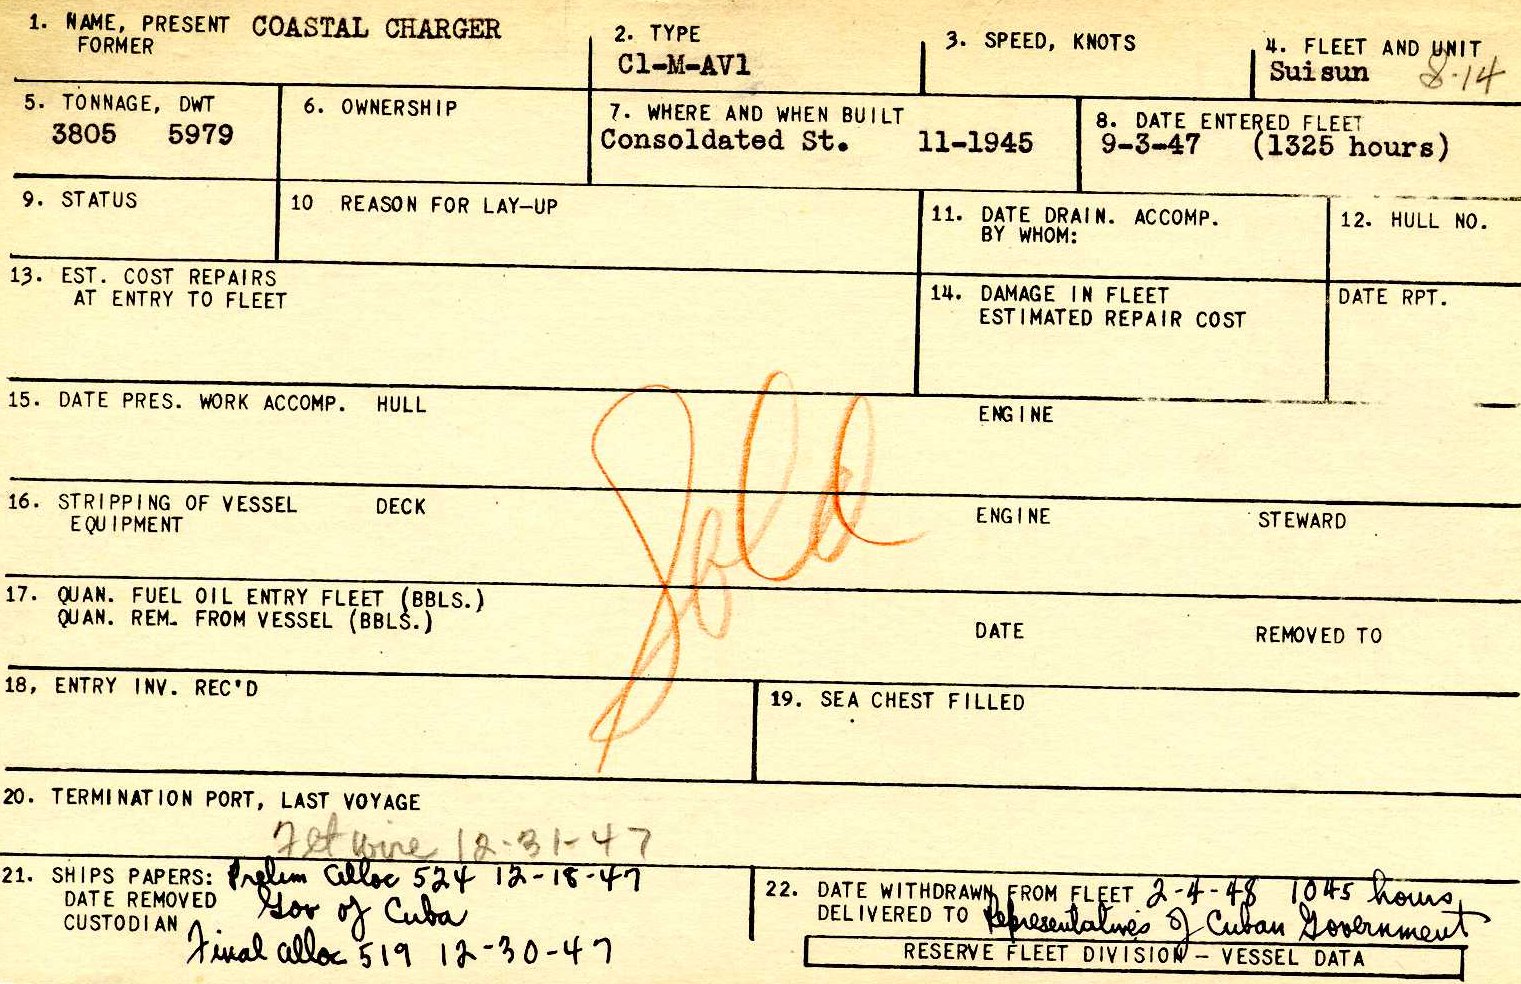 1. NAME, PRESENT COASTAL CHARGER
FORMER
2. TYPE
C1-M-AV1
3. SPEED, KNOTS
4. FLEET AND UNIT
Suisun 8-14
5. TONNAGE, DWT
3805 5979
6. OWNERSHIP
7. WHERE AND WHEN BUILT
Consoldated St. 11-1945
8. DATE ENTERED FLEET
9-3-47 (1325 hours)
9. STATUS
10 REASON FOR LAY-UP
11. DATE DRAIN. ACCOMP.
BY WHOM:
12. HULL NO.
13. EST. COST REPAIRS
AT ENTRY TO FLEET
14. DAMAGE IN FLEET
ESTIMATED REPAIR COST
DATE RPT.
15. DATE PRES. WORK ACCOMP. HULL
ENGINE
Sold
16. STRIPPING OF VESSEL DECK
EQUIPMENT
ENGINE
STEWARD
17. QUAN. FUEL OIL ENTRY FLEET (BBLS.)
QUAN. REM. FROM VESSEL (BBLS.)
DATE
REMOVED TO
18, ENTRY INV. REC'D
19. SEA CHEST FILLED
20. TERMINATION PORT, LAST VOYAGE
wire 12-31-47
21. SHIPS PAPERS: Prelim alloc 524 12-18-47
DATE REMOVED Gov of Cuba
CUSTODIAN
Final alloc 519 12-30-47
22. DATE WITHDRAWN FROM FLEET 2-4-48 1045 hours
DELIVERED TO Representatives of Cuban Government
RESERVE FLEET DIVISION - VESSEL DATA